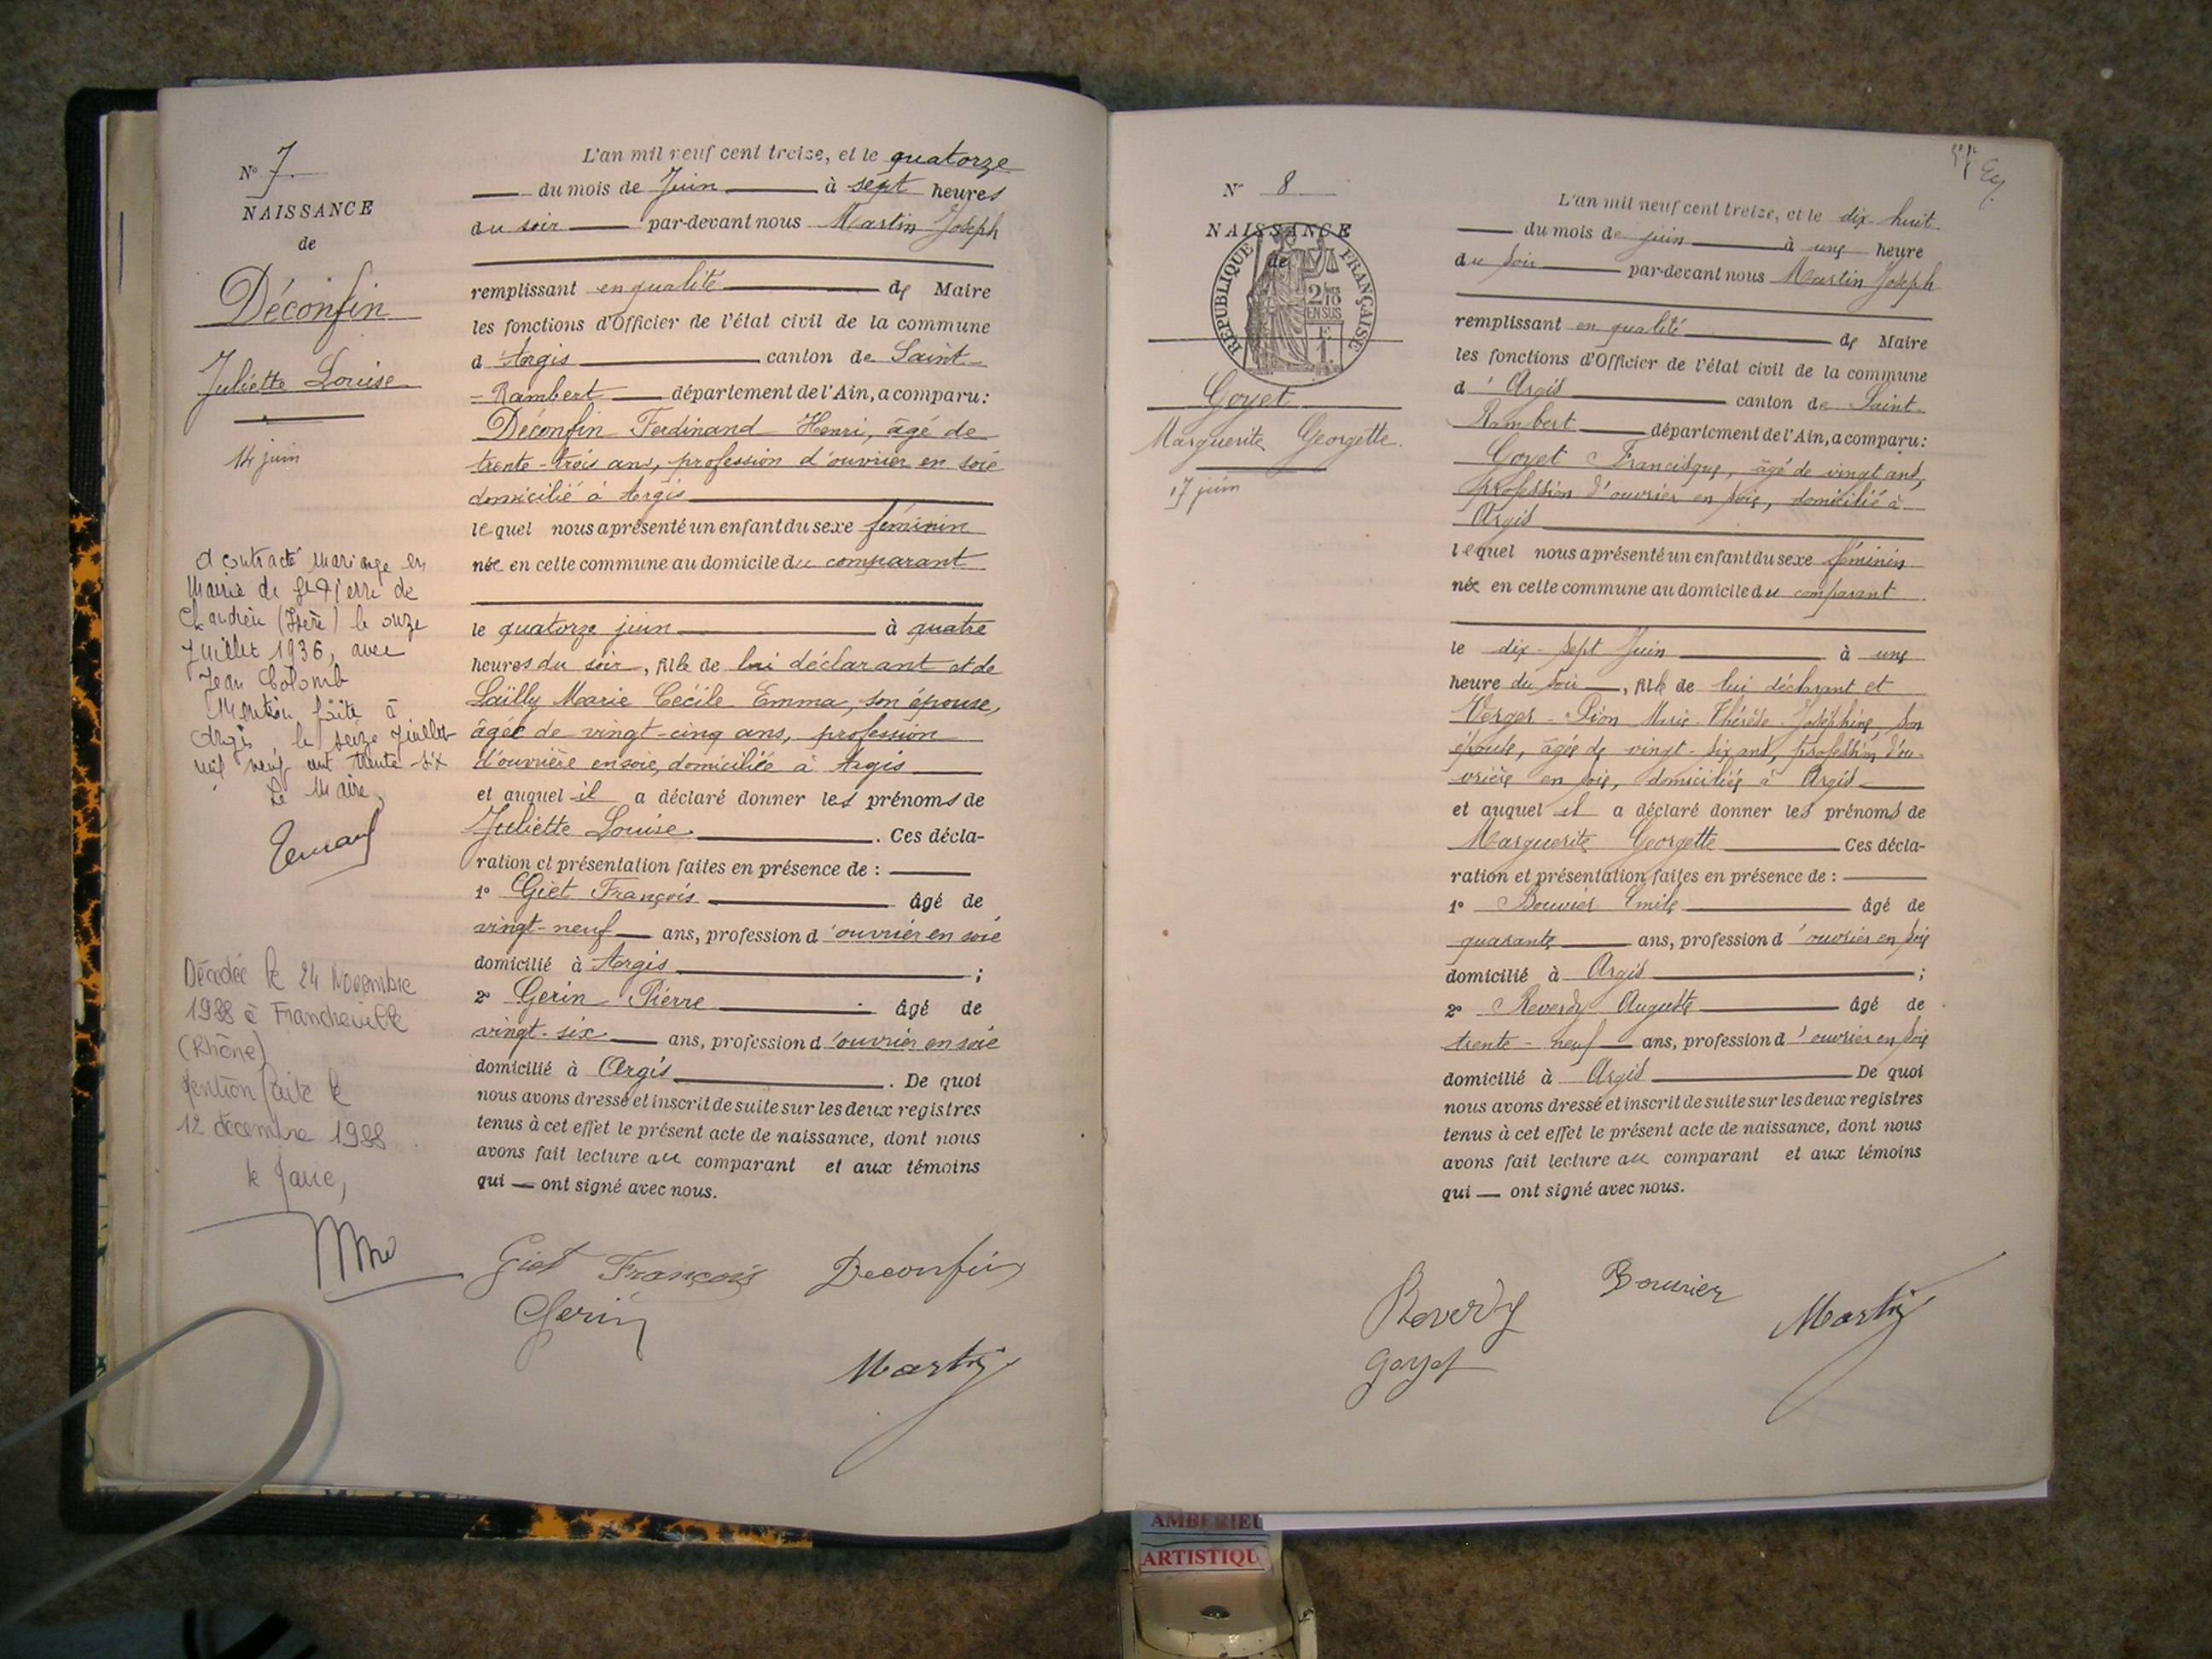 N° 7
NAISSANCE
de
Déconfin
Juliette Louise
14 juin
a contracté mariage en
Mairie de St Pierre de
Chandieu (Isère) le onze
Juillet 1936, avec
Jean Colomb
Mention faite à
Argis le seize Juillet
mil neuf cent trente-six
Le Maire
Décédée le 24 Novembre
1988 à Francheville
(Rhône)
Mention faite le
12 décembre 1988
le Maire,
L'an mil neuf cent treize, et le quatorze
du mois de Juin à sept heures
du soir par-devant nous Martin Joseph
remplissant en qualité de Maire
les fonctions d'Officier de l'état civil de la commune
d'Argis canton de Saint-
-Rambert département de l'Ain, a comparu:
Déconfin Ferdinand Henri, âgé de
trente-trois ans, profession d'ouvrier en soie
domicilié à Argis
lequel nous a présenté un enfant du sexe féminin
née en cette commune au domicile du comparant
le quatorze juin à quatre
heures du soir, fille de lui déclarant et de
Laïlly Marie Cécile Emma, son épouse,
âgée de vingt-cinq ans, profession
d'ouvrière en soie, domiciliée à Argis
et auquel il a déclaré donner les prénoms de
Juliette Louise. Ces décla-
ration et présentation faites en présence de :
1° Giet François âgé de
vingt-neuf ans, profession d'ouvrier en soie
domicilié à Argis ;
2° Gerin Pierre âgé de
vingt-six ans, profession d'ouvrier en soie
domicilié à Argis. De quoi
nous avons dressé et inscrit de suite sur les deux registres
tenus à cet effet le présent acte de naissance, dont nous
avons fait lecture au comparant et aux témoins
qui — ont signé avec nous.
Giet François Deconfin
Gerin
Martin
N° 8
NAISSANCE
de
RÉPUBLIQUE FRANÇAISE
2/10
EN SUS
Goyet
Marguerite Georgette.
17 juin
L'an mil neuf cent treize, et le dix-huit
du mois de juin à une heure
du soir par-devant nous Martin Joseph
remplissant en qualité de Maire
les fonctions d'Officier de l'état civil de la commune
d'Argis canton de Saint
Rambert département de l'Ain, a comparu:
Goyet Francisque, âgé de vingt ans,
profession d'ouvrier en soie, domicilié à
Argis
lequel nous a présenté un enfant du sexe féminin
née en cette commune au domicile du comparant
le dix-sept Juin à une
heure du soir, fille de lui déclarant et
Verger-Lion Marie-Thérèse-Joséphine, son
épouse, âgée de vingt-six ans, profession d'ou-
vrière en soie, domiciliée à Argis
et auquel il a déclaré donner les prénoms de
Marguerite Georgette Ces décla-
ration et présentation faites en présence de :
1° Bouvier Emile âgé de
quarante ans, profession d'ouvrier en soie
domicilié à Argis ;
2° Reverdy Auguste âgé de
trente-neuf ans, profession d'ouvrier en soie
domicilié à Argis De quoi
nous avons dressé et inscrit de suite sur les deux registres
tenus à cet effet le présent acte de naissance, dont nous
avons fait lecture au comparant et aux témoins
qui — ont signé avec nous.
Reverdy Bouvier Martin
Goyet
AMBERIEU
ARTISTIQU